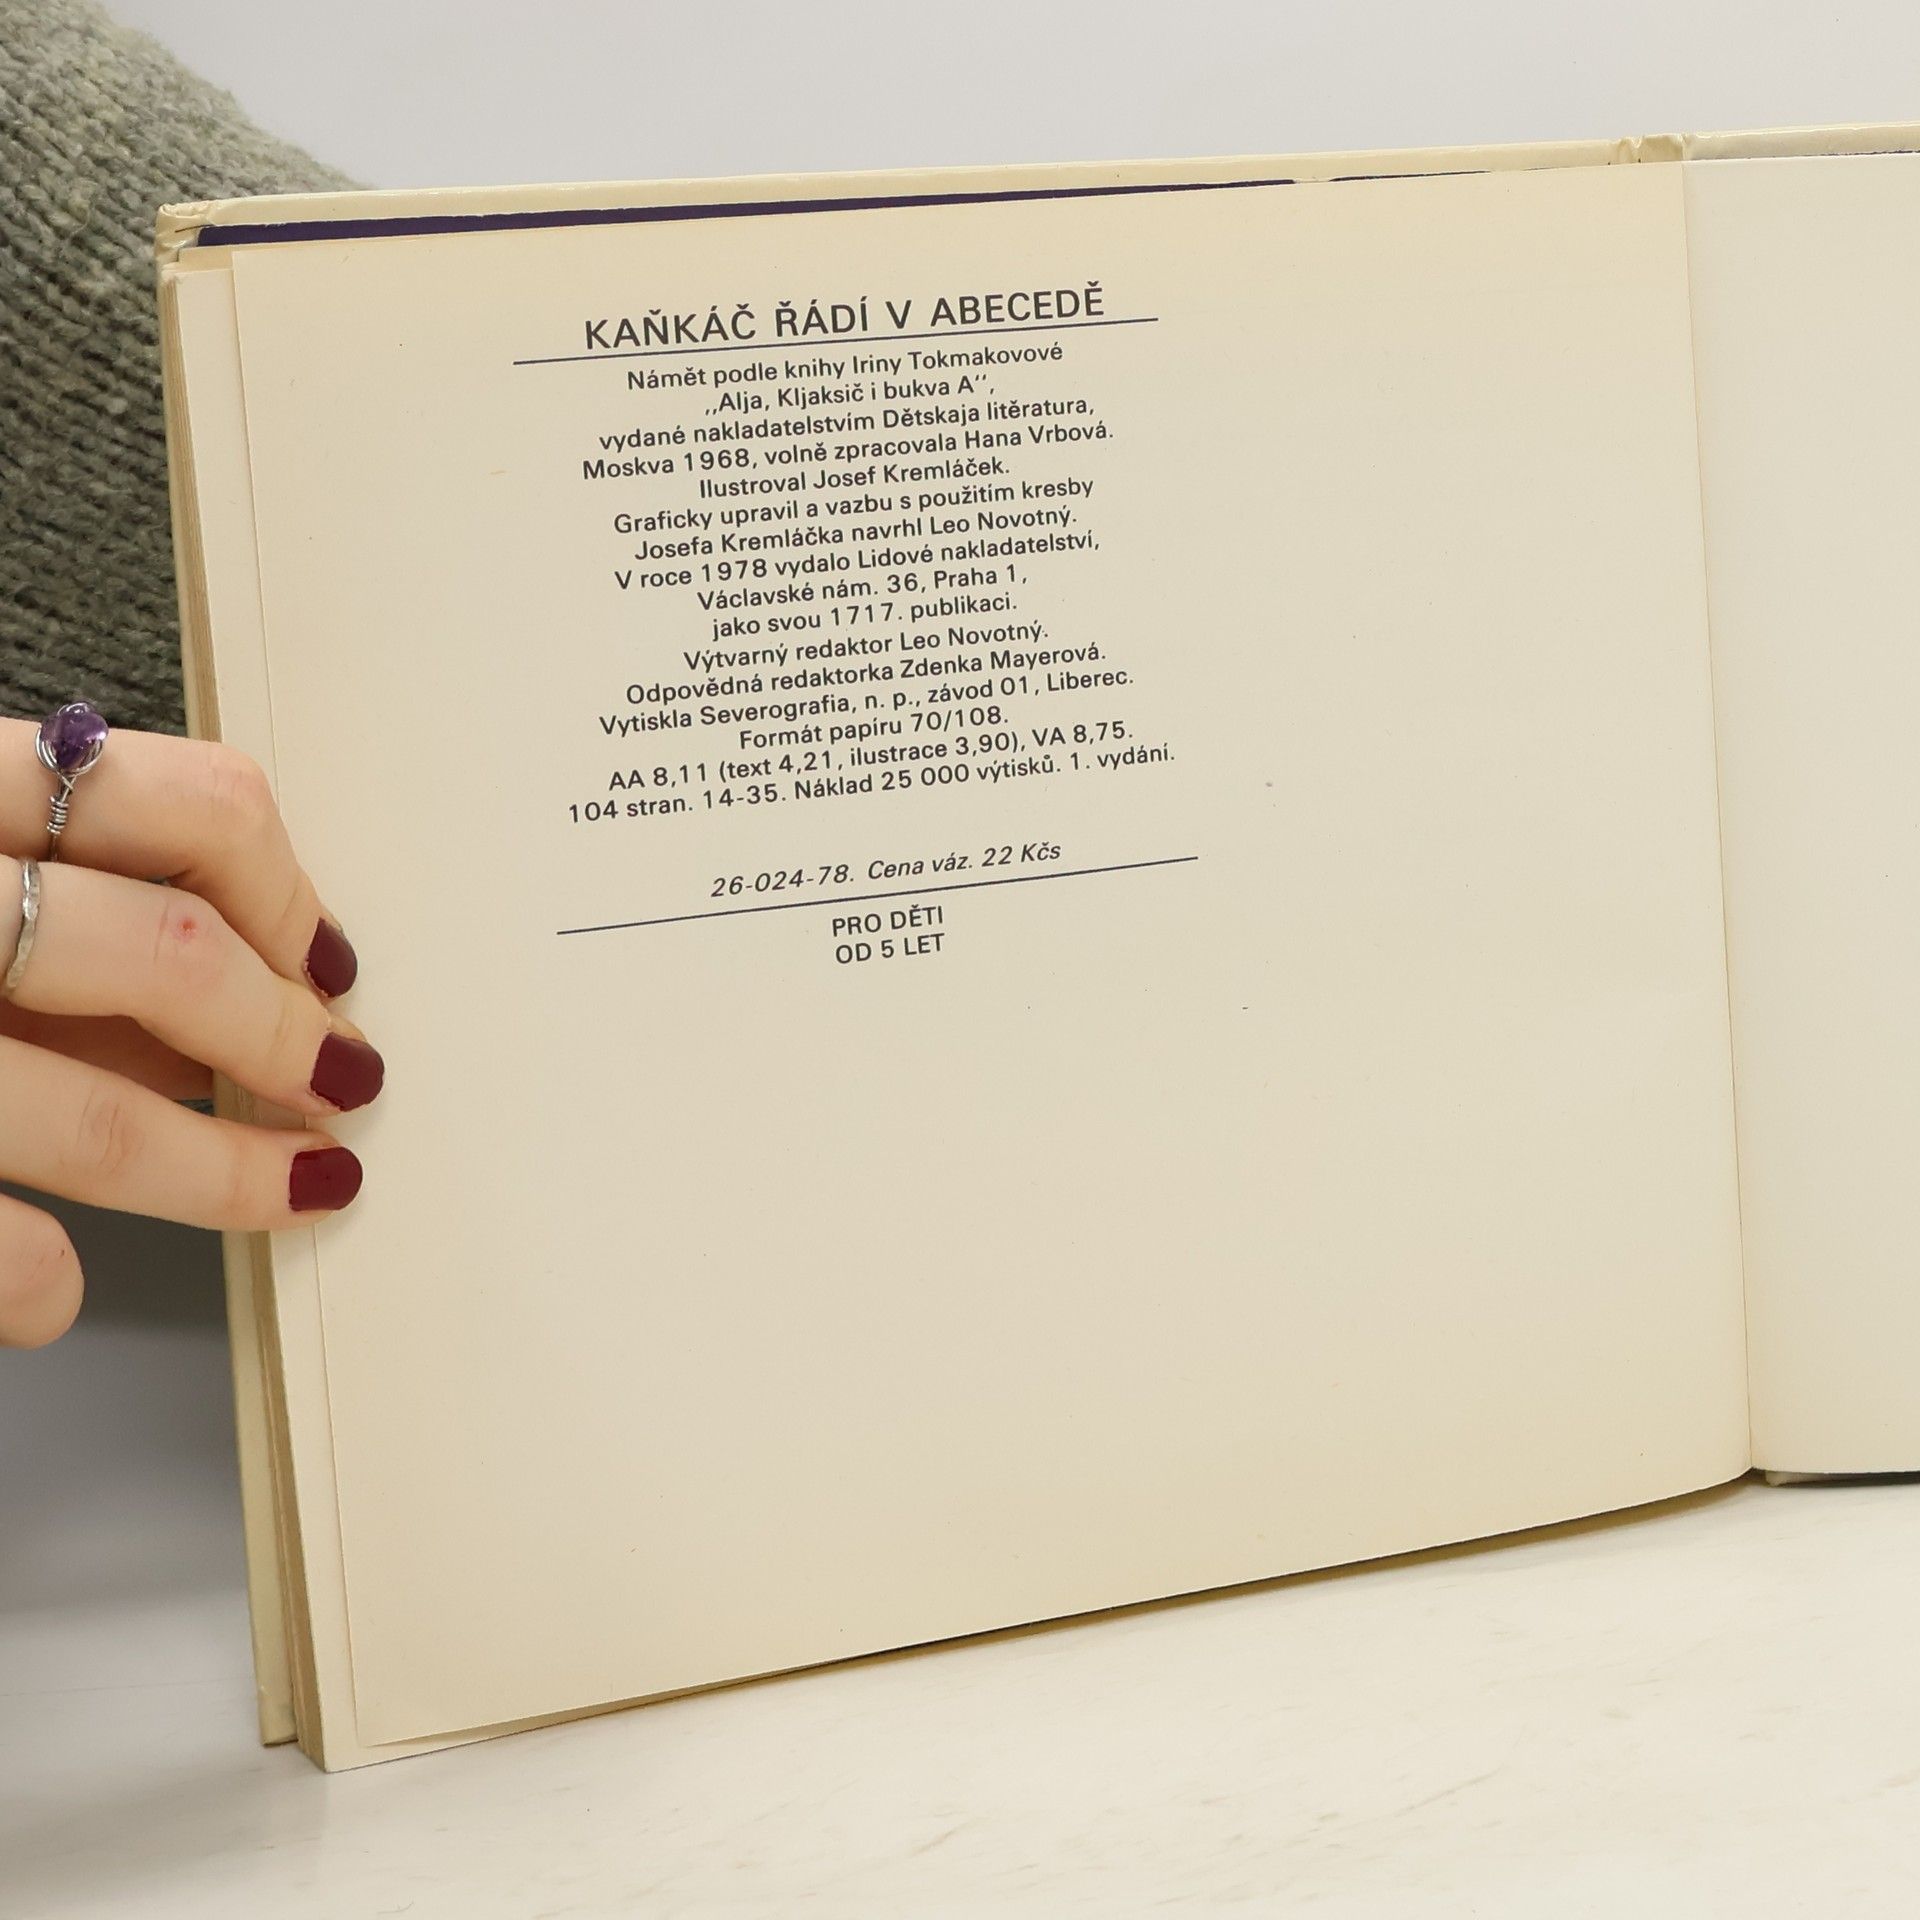 KAŇKÁČ ŘÁDÍ V ABECEDĚ
Námět podle knihy Iriny Tokmakovové
,,Alja, Kljaksič i bukva A'',
vydané nakladatelstvím Dětskaja litěratura,
Moskva 1968, volně zpracovala Hana Vrbová.
Ilustroval Josef Kremláček.
Graficky upravil a vazbu s použitím kresby
Josefa Kremláčka navrhl Leo Novotný.
V roce 1978 vydalo Lidové nakladatelství,
Václavské nám. 36, Praha 1,
jako svou 1717. publikaci.
Výtvarný redaktor Leo Novotný.
Odpovědná redaktorka Zdenka Mayerová.
Vytiskla Severografia, n. p., závod 01, Liberec.
Formát papíru 70/108.
AA 8,11 (text 4,21, ilustrace 3,90), VA 8,75.
104 stran. 14-35. Náklad 25 000 výtisků. 1. vydání.
26-024-78. Cena váz. 22 Kčs
PRO DĚTI
OD 5 LET